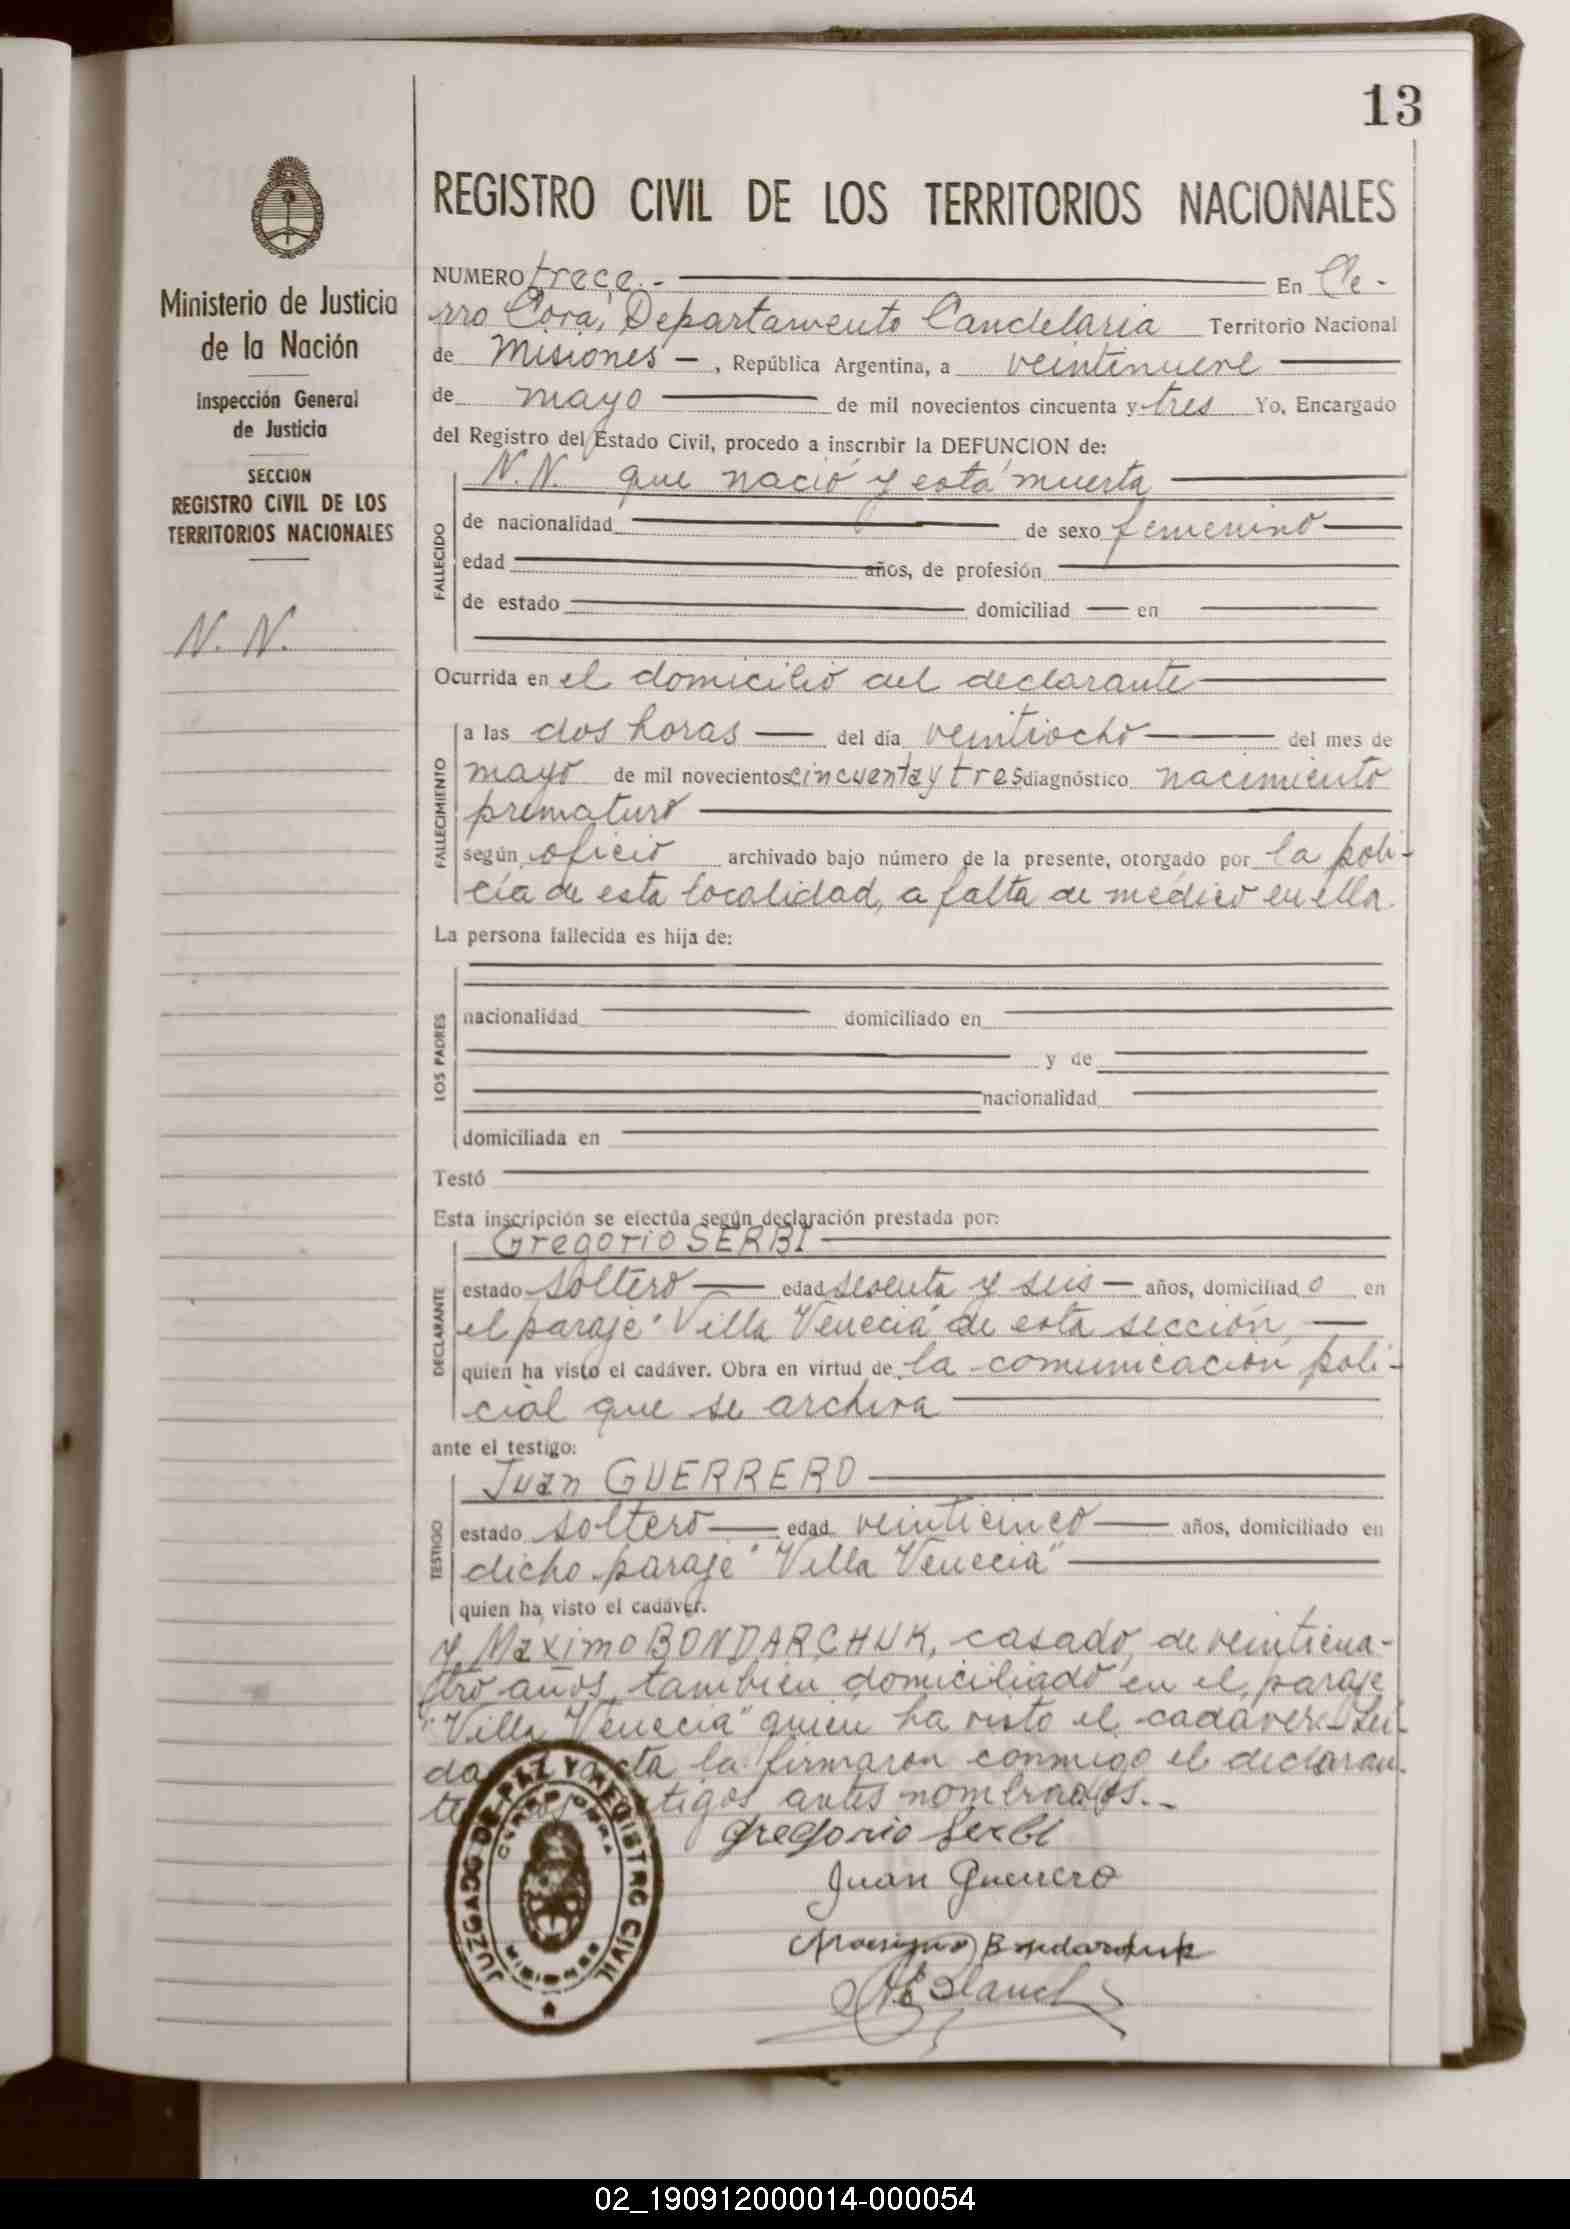 13
REGISTRO CIVIL DE LOS TERRITORIOS NACIONALES
Ministerio de Justicia
de la Nación
Inspección General
de Justicia
SECCION
REGISTRO CIVIL DE LOS
TERRITORIOS NACIONALES
N. N.
NUMERO trece.- En Ce-
rro Corá, Departamento Candelaria Territorio Nacional
de Misiones - , República Argentina, a veintinueve
de mayo de mil novecientos cincuenta y tres Yo, Encargado
del Registro del Estado Civil, procedo a inscribir la DEFUNCION de:
FALLECIDO
N.N. que nació y está muerta
de nacionalidad de sexo femenino
edad años, de profesión
de estado domiciliad en
Ocurrida en el domicilio del declarante
FALLECIMIENTO
a las dos horas del día veintiocho del mes de
mayo de mil novecientos cincuenta y tres diagnóstico nacimiento
prematuro
según oficio archivado bajo número de la presente, otorgado por la poli-
cía de esta localidad, a falta de médico en ella.
La persona fallecida es hija de:
LOS PADRES
nacionalidad domiciliado en
y de
nacionalidad
domiciliada en
Testó
Esta inscripción se efectúa según declaración prestada por:
DECLARANTE
Gregorio SERBI
estado soltero edad y seis años, domiciliado en
el paraje "Villa Venecia" de esta sección,
quien ha visto el cadáver. Obra en virtud de la comunicación poli-
cial que se archiva
ante el testigo:
TESTIGO
Juan GUERRERO
estado soltero edad veinticinco años, domiciliado en
dicho paraje "Villa Venecia"
quien ha visto el cadáver.
y Máximo BONDARCHUK, casado, de veinticua-
tro años, también domiciliado en el paraje
"Villa Venecia" quien ha visto el cadáver.- Leí-
da acta la firmaron conmigo el declaran-
te tigos antes nombrados.-
Gregorio Serbi
Juan Guerrero
Maximo Bondarchuk
JUZGADO DE PAZ Y REGISTRO CIVIL
CERRO CORA
MISIONES
02_190912000014-000054